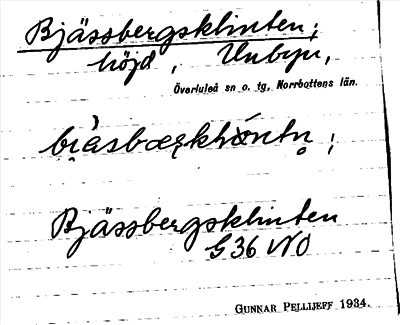 Bjässbergsklinten;
höjd, Unbyn,
Överluleå sn o. tg, Norrbottens län.
Bjässbergsklinten
G 36 NO
GUNNAR PELLIJEFF 1934.